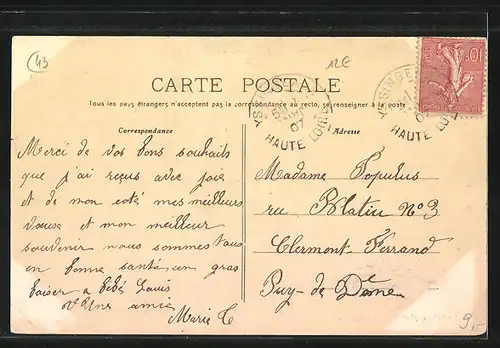 43
12E
CARTE POSTALE
Tous les pays étrangers n'acceptent pas la correspondance au recto, se renseigner à la poste
YSSINGEAUX
07
HAUTE LOIRE
YSSINGEAUX
07
HAUTE LOIRE
10
Correspondance
Merci de vos bons souhaits
que j'ai reçus avec joie
et de mon coté mes meilleurs
vœux et mon meilleur
souvenir nous sommes tous
en bonne santé un gros
baiser a bébé Louis
amie
Marie C
Adresse
Madame Populus
ru Blatin N° 3
Clermont-Ferrand
Puy-de Dôme
9,-